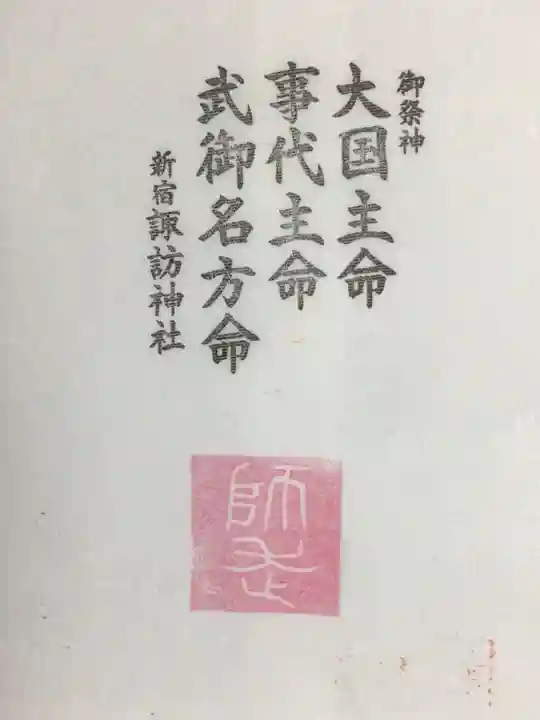 御祭神
大国主命
事代主命
武御名方命
新宿諏訪神社
師走